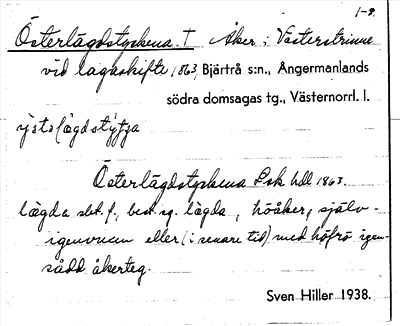 1-9.
Österlägdstyckena. T Åker i Västerstrinne
vid lagaskifte 1863, Bjärtrå s:n., Ångermanlands
södra domsagas tg., Västernorrl. l.
Österlägdstyckena Lsk hdl 1863.
lägda sbt. f., best. sg. lägda, höåker, själv-
igenvuxen eller (i senare tid) med höfrö igen-
sådd åkerteg.
Sven Hiller 1938.